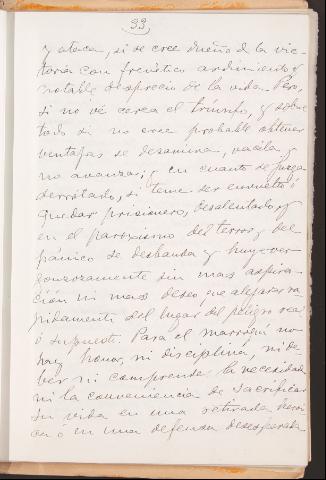 33
y ataca, si se cree dueño de la vic-
toria con frenético ardimiento y
notable desprecio de la vida. Pero,
si no vé cerca el triunfo, y sobre
todo si no cree probable obtener
ventajas se desanima, vacila y
no avanza; y en cuanto se juzga
derrotado, si teme ser envuelto ó
quedar prisionero, desalentado, y
en el paroxismo del terror y del
pánico se desbanda y huye ver-
gonzosamente sin mas aspira-
ción ni mas deseo, que alejarse rá-
pidamente del lugar del peligro real
ó supuesto. Para el marroquí no
hay honor, ni disciplina, ni de-
ber ni comprende la necesidad
ni la conveniencia de sacrificar
su vida en una retirada heroi-
ca ó en una defensa desesperada